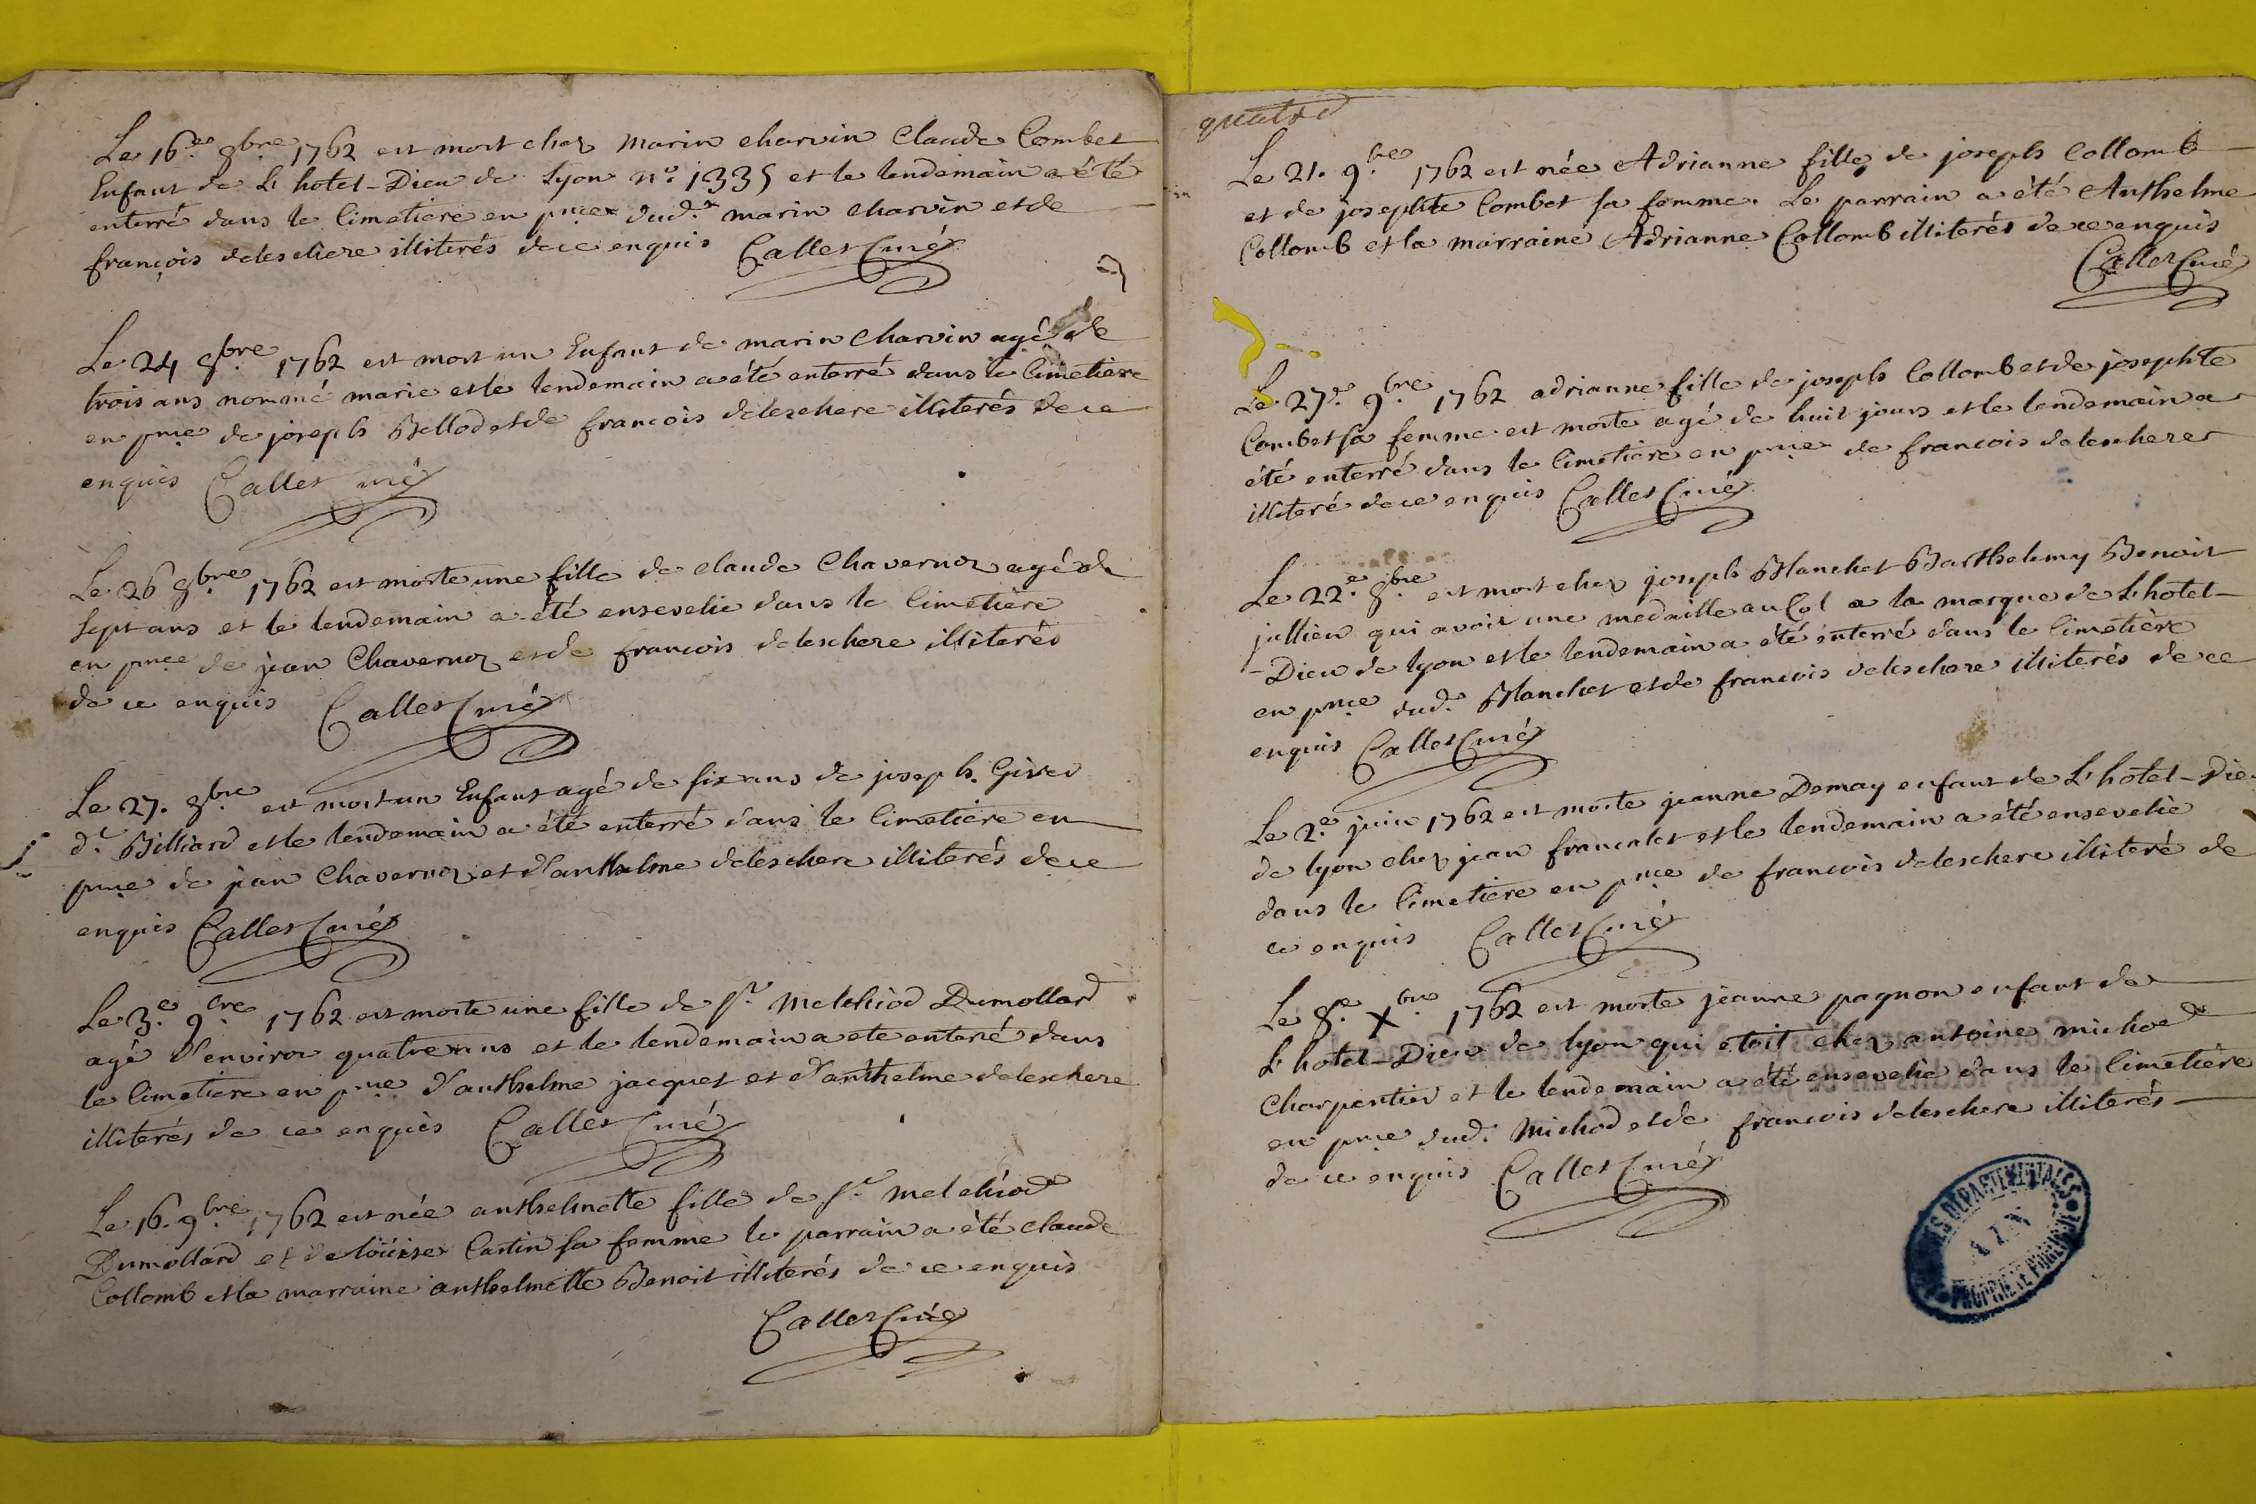 Le 16.e 8bre 1762 est mort chez Marin charvin Claude Combet
Enfant de L'hotel-Dieu de Lyon n.o 1335 et le lendemain a été
enterré dans le Cimetière en pnce dud.t marin charvin et de
françois deleschere illiterés de ce enquis Callet Curé
Le 24 8bre 1762 est mort un Enfant de marin Charvin agé de
trois ans nommé marie et le lendemain a été enterré dans le Cimetiere
en pnce de joseph Bellod et de francois deleschere illiterés de ce
enquis Callet Curé
Le 26 8bre 1762 est morte une fille de claude Chavernoz agé de
sept ans et le lendemain a été ensevelie dans le Cimetière
en pnce de jean Chavernoz et de francois deleschere illiterés
de ce enquis Callet Curé
Le 27. 8bre est mort un Enfant agé de six ans de joseph. Giret
d.t Billiard et le lendemain a été enterré dans le Cimetière en
pnce de jean Chavernoz et d'anthelme deleschere illiterés de ce
enquis Callet Curé
Le 3.e 9bre 1762 est morte une fille de s.r Melchiod Dumollard
agé d'environ quatre ans et le lendemain a ete enterré dans
le Cimetiere en pnce d'anthelme jacquet et d'anthelme deleschere
illiterés de ce enquis Callet Curé
Le 16. 9bre 1762 est née anthelmette fille de s.r melchiod
Dumollard et de loüise Cartin sa femme le parrain a été claude
Collomb et la marraine anthelmette Benoit illiterés de ce enquis
Callet Curé
quatre
Le 21. 9bre 1762 est née Adrianne fille de joseph Collomb
et de josephte Combet sa femme. Le parrain a été Anthelme
Collomb et la marraine Adrianne Collomb illiterés de ce enquis
Callet Curé
Le 27.e 9bre 1762 adrianne fille de joseph Collomb et de josephte
Combet sa femme est morte agé de huit jours et le lendemain a
été enterré dans le Cimetiere en pnce de francois deleschere
illiteré de ce enquis Callet Curé
Le 22.e 8bre est mort chez joseph Blanchet Barthelemy Benoit
jullien qui avoit une medaille au Col a la marque de L'hotel-
-Dieu de lyon et le lendemain a été enterré dans le Cimetière
en pnce dud. Blanchet et de francois deleschere illiterés de ce
enquis Callet Curé
Le 2.e juin 1762 est morte jeanne Demay enfant de L'hotel-Die
de lyon chez jean francalet et le lendemain a été ensevelie
dans le Cimetiere en pnce de francois deleschere illiteré de
ce enquis Callet Curé
Le 8.e Xbre 1762 est morte jeanne pagnon enfant de
L'hotel-Dieu de lyon qui etoit chez antoine michod
Charpentier et le lendemain a été ensevelie dans le Cimetière
en pnce dud. Michod et de francois deleschere illiterés
de ce enquis Callet Curé
ARCHIVES DEPARTEMENTALES
AIN
PROPRIETE PUBLIQUE